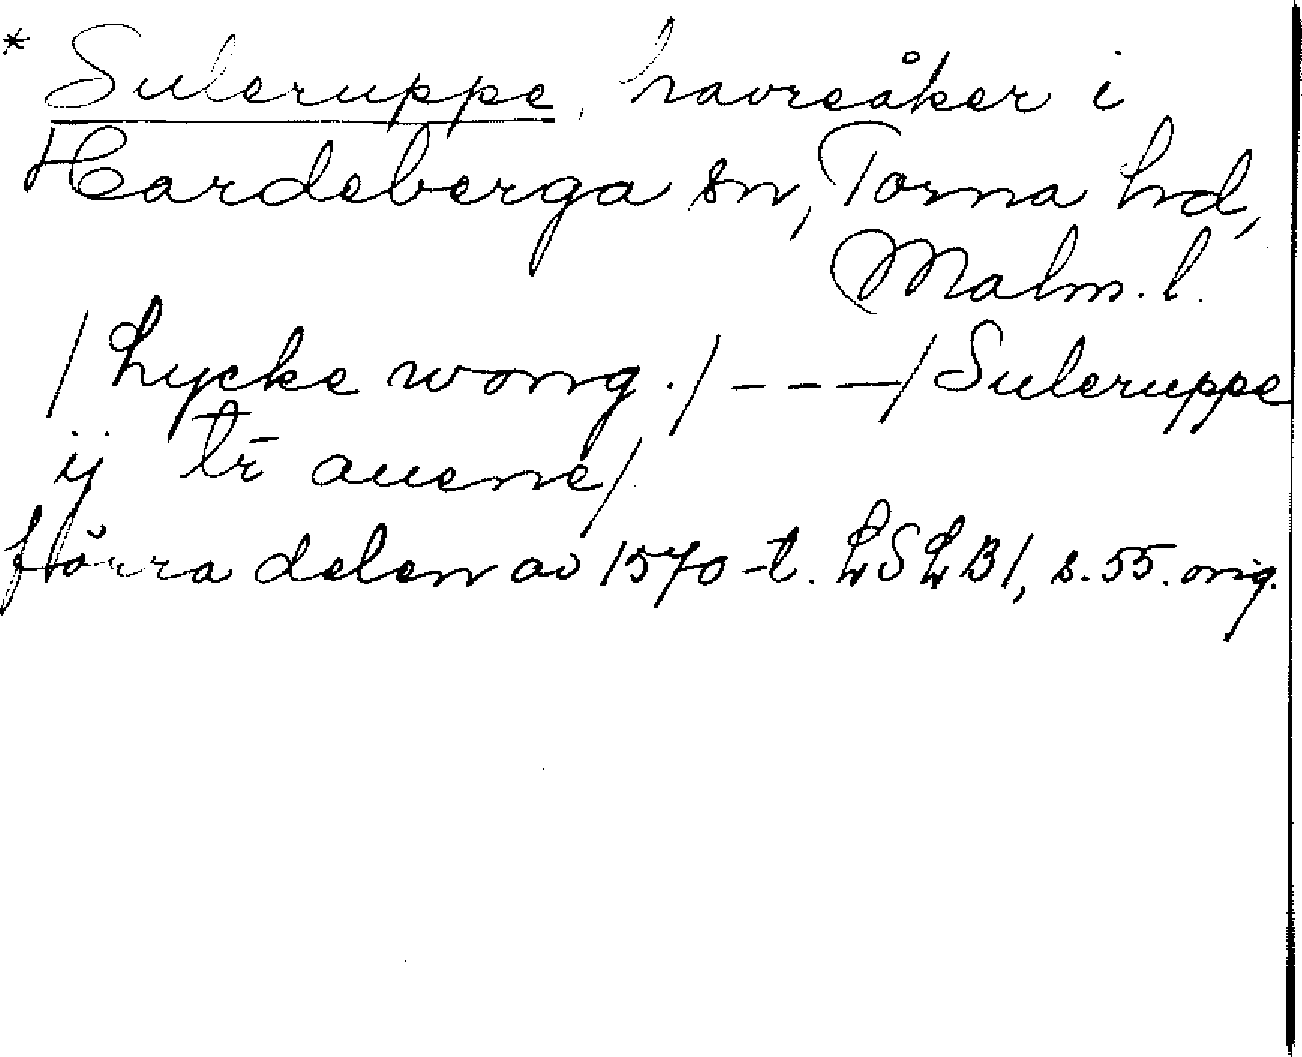 * Suleruppe, havreåker i
Hardeberga sn, Torna hd,
Malm. l.
/ Lycke wong. / - - - / Suleruppe
ij tr̄ auene /
förra delen av 1570-t. LSLB1, s. 55. orig.